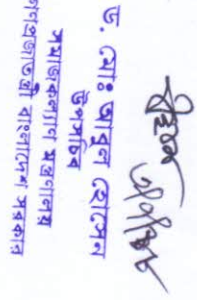 ড. মোঃ আবুল হোসেন
উপসচিব
সমাজকল্যাণ মন্ত্রণালয়
গণপ্রজাতন্ত্রী বাংলাদেশ সরকার